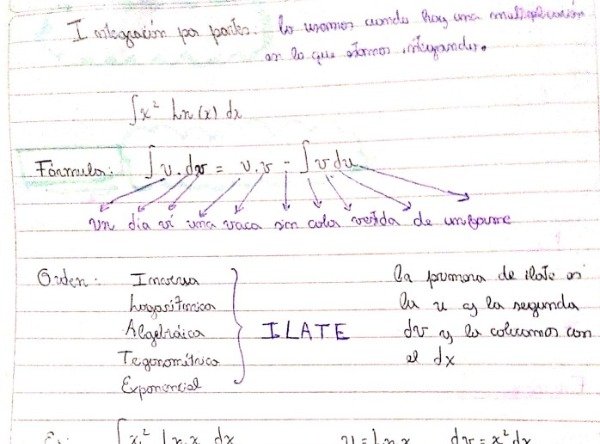 Integración por partes. lo usamos cuando hay una multiplicación
en lo que estamos integrando.
∫x² Ln(x) dx
Fórmula: ∫ u.dv = u.v - ∫ v du
un dia vi una vaca sin cola vestida de uniforme
Orden: Inversa
Logarítmica
Algebráica
Trigonométrica
Exponencial
ILATE
La primera de ilate es
la u y la segunda
dv y la colocamos con
el dx
Ej: ∫x² Ln x dx u = Ln x dv = x² dx